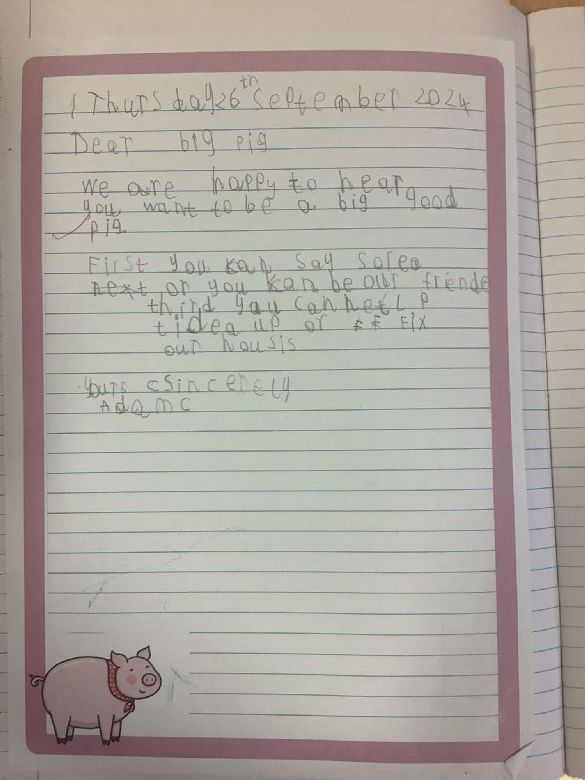 Thursday 26th September 2024
Dear big pig
We are happy to hear
you want to be a big good
pig.
First you kan say sorea
next or you kan be our friende
third you can hetlp
tidea up or fix
our housis
Yours csincerely
Adam c